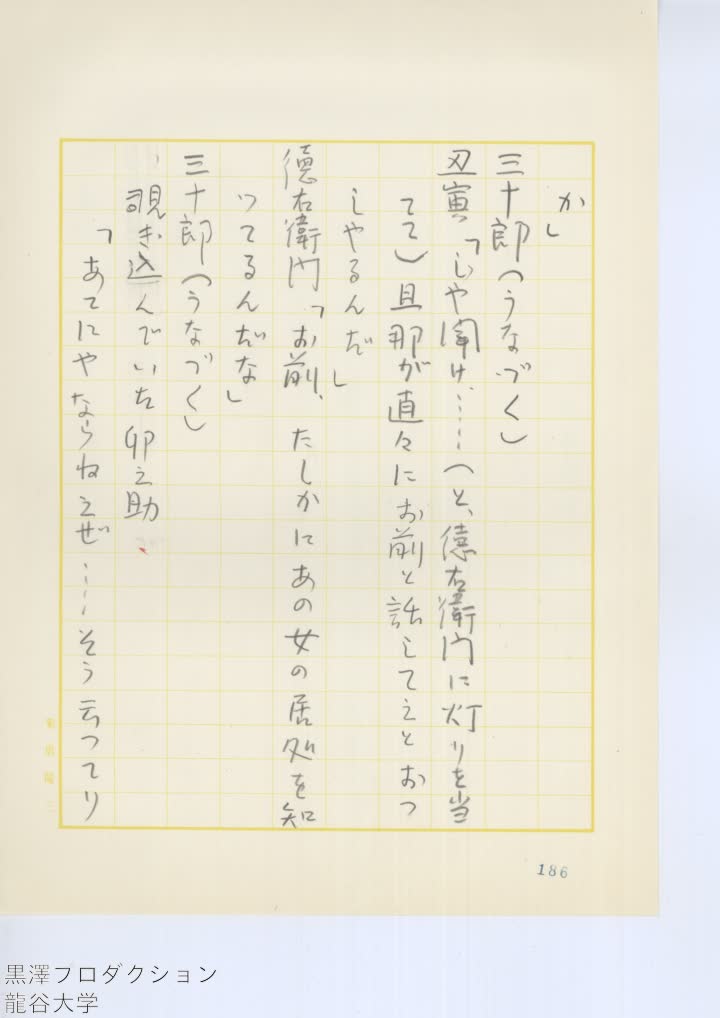 か」
三十郎(うなづく)
丑寅「じや聞け……(と、徳右衛門に灯りを当
てて)旦那が直々にお前と話してえとおつ
しやるんだ」
徳右衛門「お前、たしかにあの女の居処を知
つてるんだな」
三十郎(うなづく)
覗き込んでいた卯之助、
「あてにやならねえぜ……そう云つてり
186
黒澤プロダクション
龍谷大学